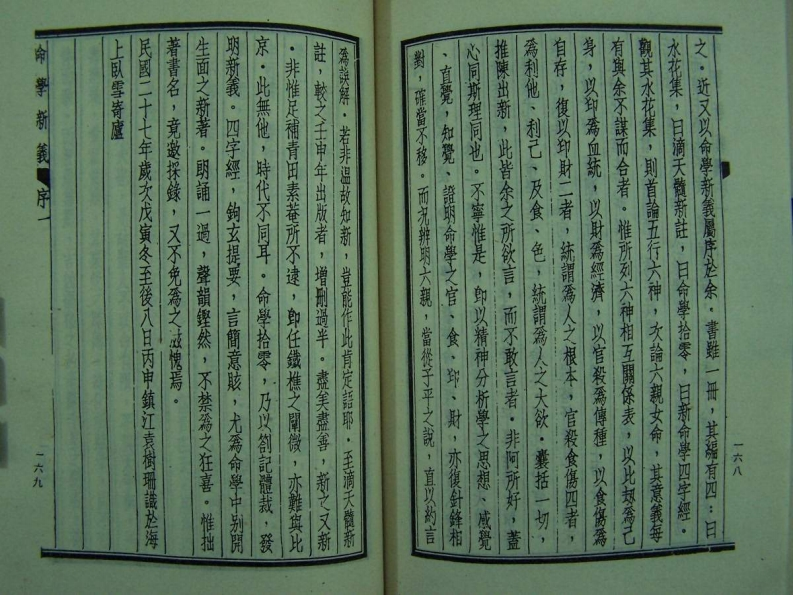 之。近又以命學新義屬序於余。書雖一冊，其編有四：曰
水花集，曰滴天髓新註，曰命學拾零，曰新命學四字經。
觀其水花集，則首論五行六神，次論六親女命，其意義每
有與余不謀而合者。惟所列六神相互關係表，以比刼爲己
身，以印爲血統，以財爲經濟，以官殺爲傳種，以食傷爲
自存，復以印財二者，統謂爲人之根本，官殺食傷四者，
爲利他、利己、及食、色，統謂爲人之大欲。囊括一切，
推陳出新，此皆余之所欲言，而不敢言者。非阿所好，蓋
心同斯理同也。不寧惟是，卽以精神分析學之思想、感覺
、直覺，知覺、證明命學之官、食、印、財，亦復針鋒相
對，確當不移。而況辨明六親，當從子平之說，直以約言
一六八
爲誤解。若非溫故知新，豈能作此肯定語耶。至滴天髓新
註，較之壬申年出版者，增刪過半。盡美盡善，新之又新
。非惟足補青田素菴所不逮，卽任鐵樵之闡微，亦難與比
京。此無他，時代不同耳。命學拾零，乃以劄記體裁，發
明新義。四字經，鉤玄提要，言簡意賅，尤爲命學中別開
生面之新著。朗誦一過，聲韻鏗然，不禁爲之狂喜。惟拙
著書名，竟邀採錄，又不免爲之滋愧焉。
民國二十七年歲次戊寅冬至後八日丙申鎭江袁樹珊識於海
上臥雪寄廬
命學新義 序一
一六九